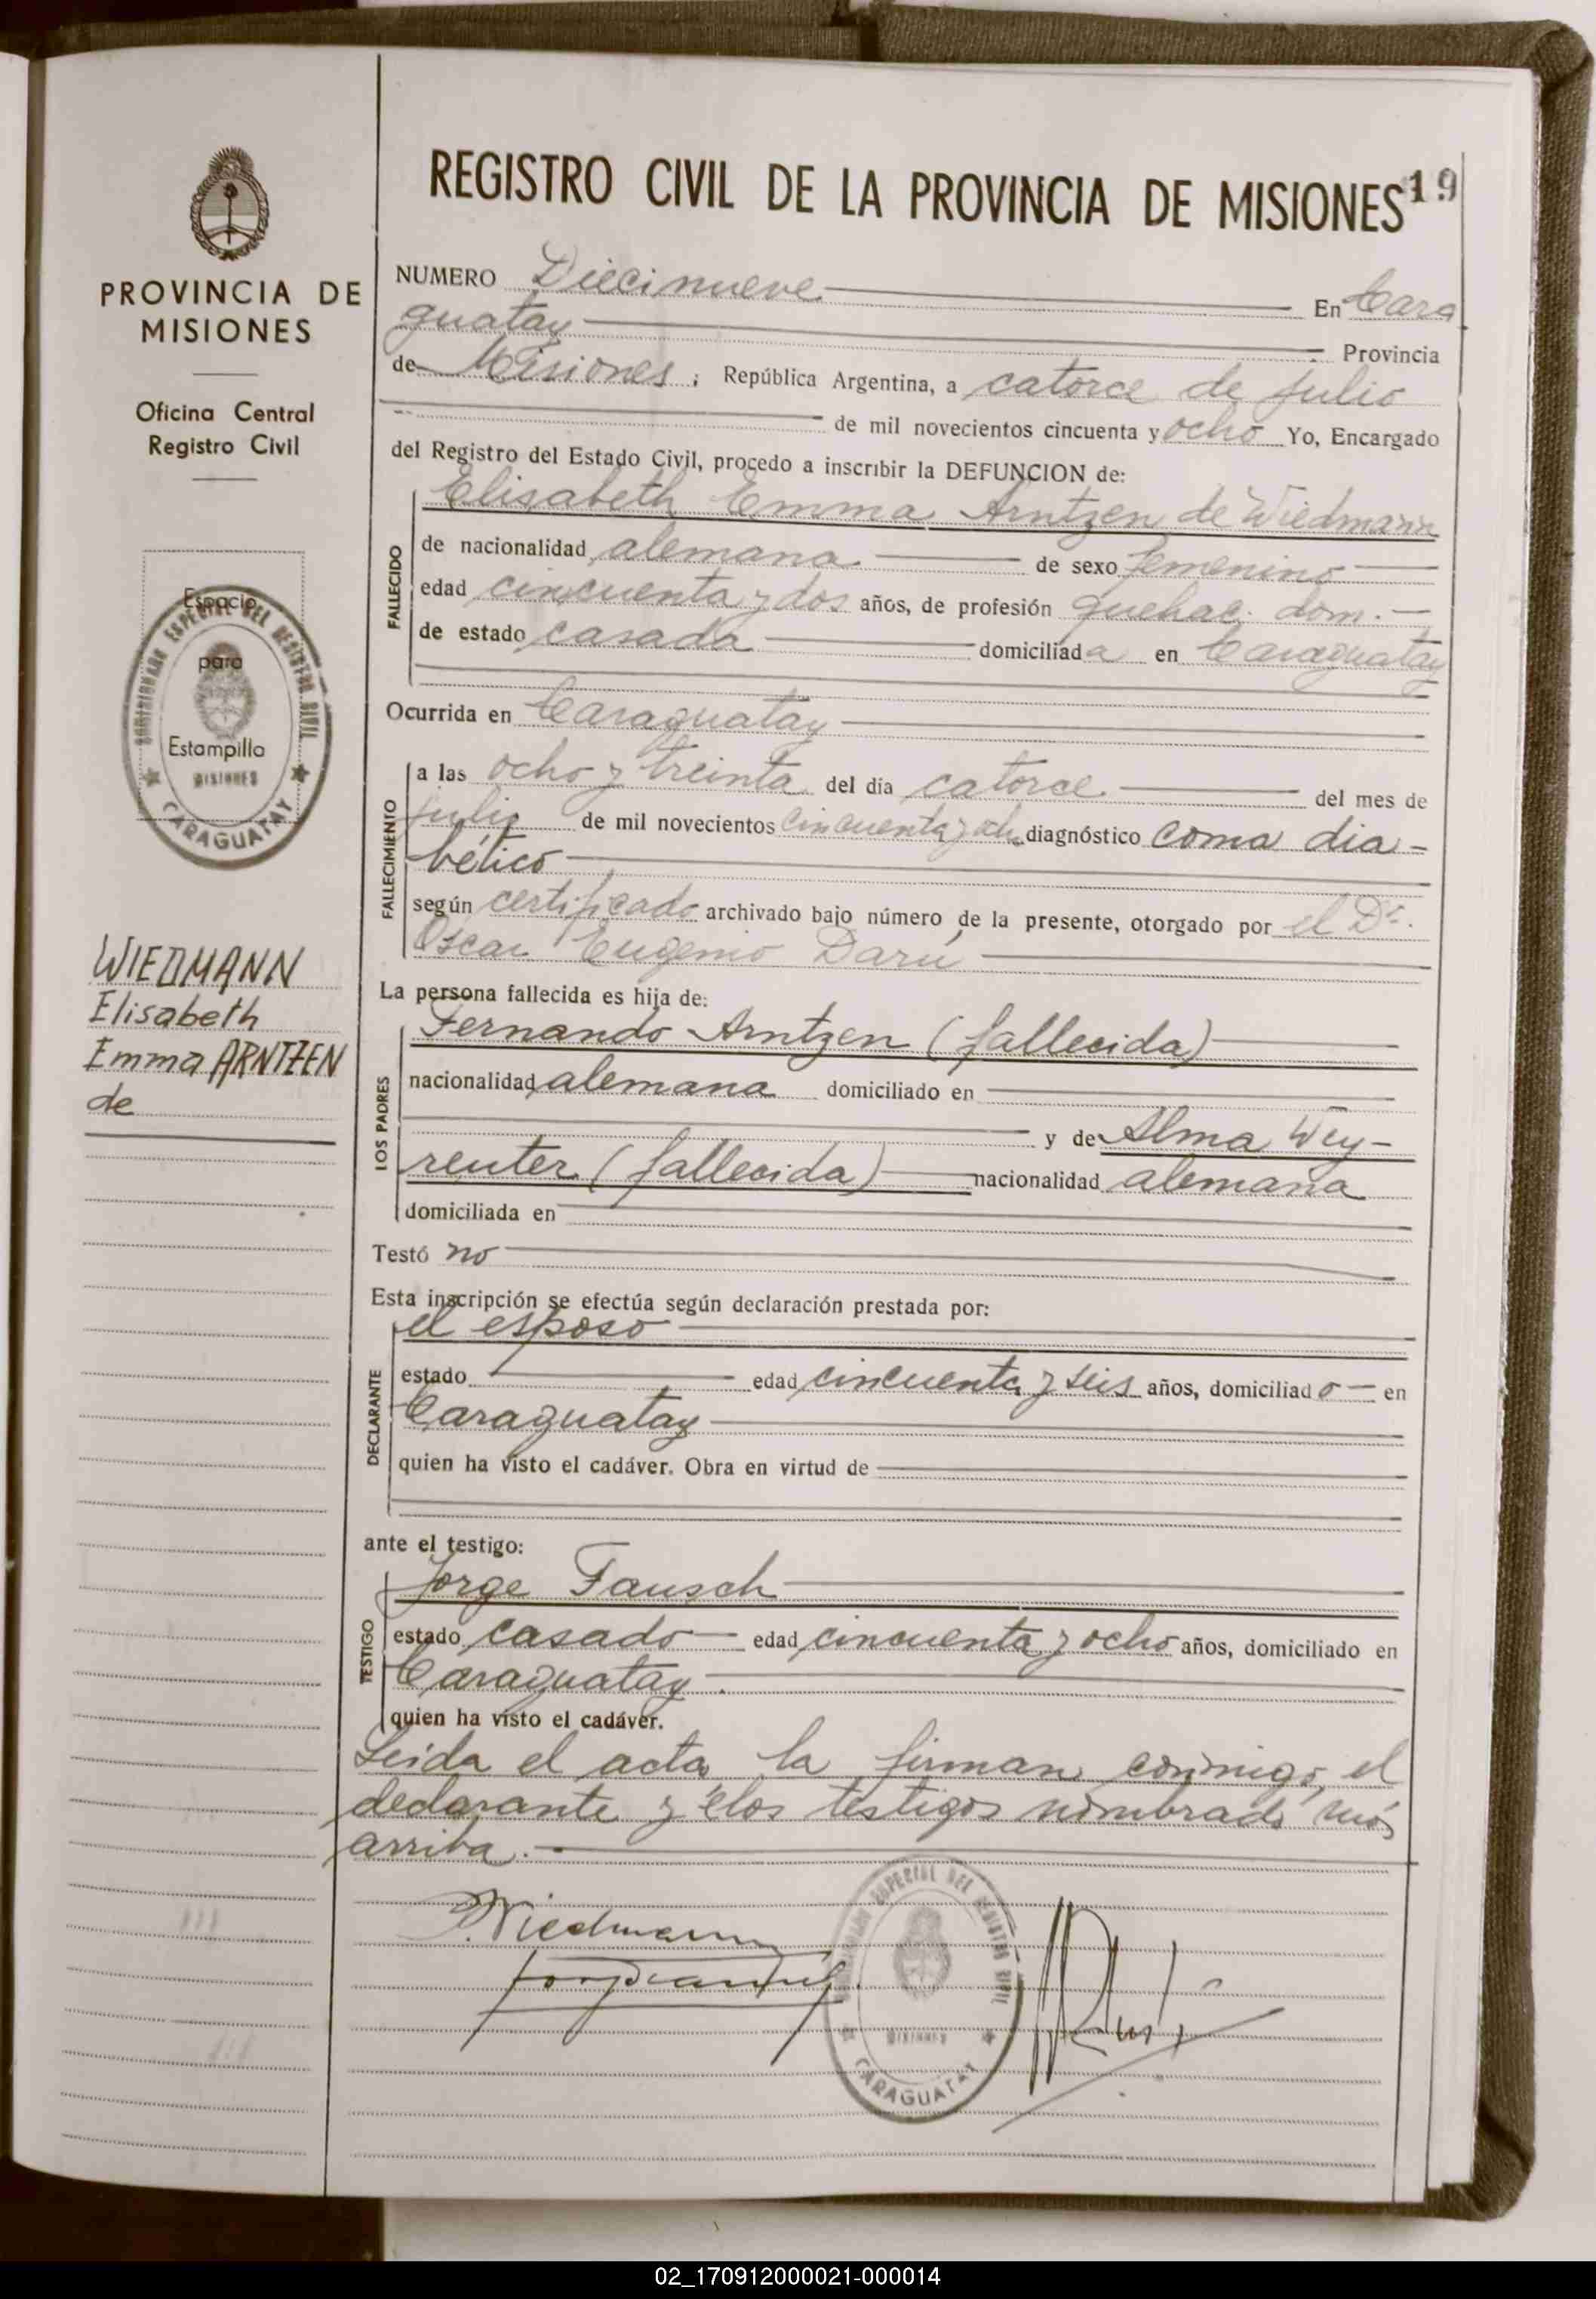 REGISTRO CIVIL DE LA PROVINCIA DE MISIONES 19
PROVINCIA DE
MISIONES
Oficina Central
Registro Civil
Espacio
para
Estampilla
COMISIONADO ESPECIAL DEL REGISTRO CIVIL
MISIONES
CARAGUATAY
WIEDMANN
Elisabeth
Emma ARNTZEN
de
NUMERO Diecinueve En Cara
guatay Provincia
de Misiones ; República Argentina, a catorce de julio
de mil novecientos cincuenta y ocho Yo, Encargado
del Registro del Estado Civil, procedo a inscribir la DEFUNCION de:
FALLECIDO
Elisabeth Emma Arntzen de Wiedmann
de nacionalidad alemana de sexo femenino
edad cincuenta y dos años, de profesión quehac. dom. -
de estado casada domiciliada en Caraguatay
Ocurrida en Caraguatay
FALLECIMIENTO
a las ocho y treinta del día catorce del mes de
julio de mil novecientos cincuenta y ocho diagnóstico coma dia-
bético
según certificado archivado bajo número de la presente, otorgado por el Dr.
Oscar Eugenio Darú
La persona fallecida es hija de:
LOS PADRES
Fernando Arntzen (fallecida)
nacionalidad alemana domiciliado en
y de Alma Wey-
reuter (fallecida) nacionalidad alemana
domiciliada en
Testó no
Esta inscripción se efectúa según declaración prestada por:
DECLARANTE
el esposo
estado edad cincuenta y seis años, domiciliado en
Caraguatay
quien ha visto el cadáver. Obra en virtud de
ante el testigo:
TESTIGO
Jorge Fausch
estado casado edad cincuenta y ocho años, domiciliado en
Caraguatay.
quien ha visto el cadáver.
Leida el acta, la firman conmigo, el
declarante y los testigos nombrado más
arriba. -
Wiedmann
COMISIONADO ESPECIAL DEL REGISTRO CIVIL
MISIONES
CARAGUATAY
02_170912000021-000014